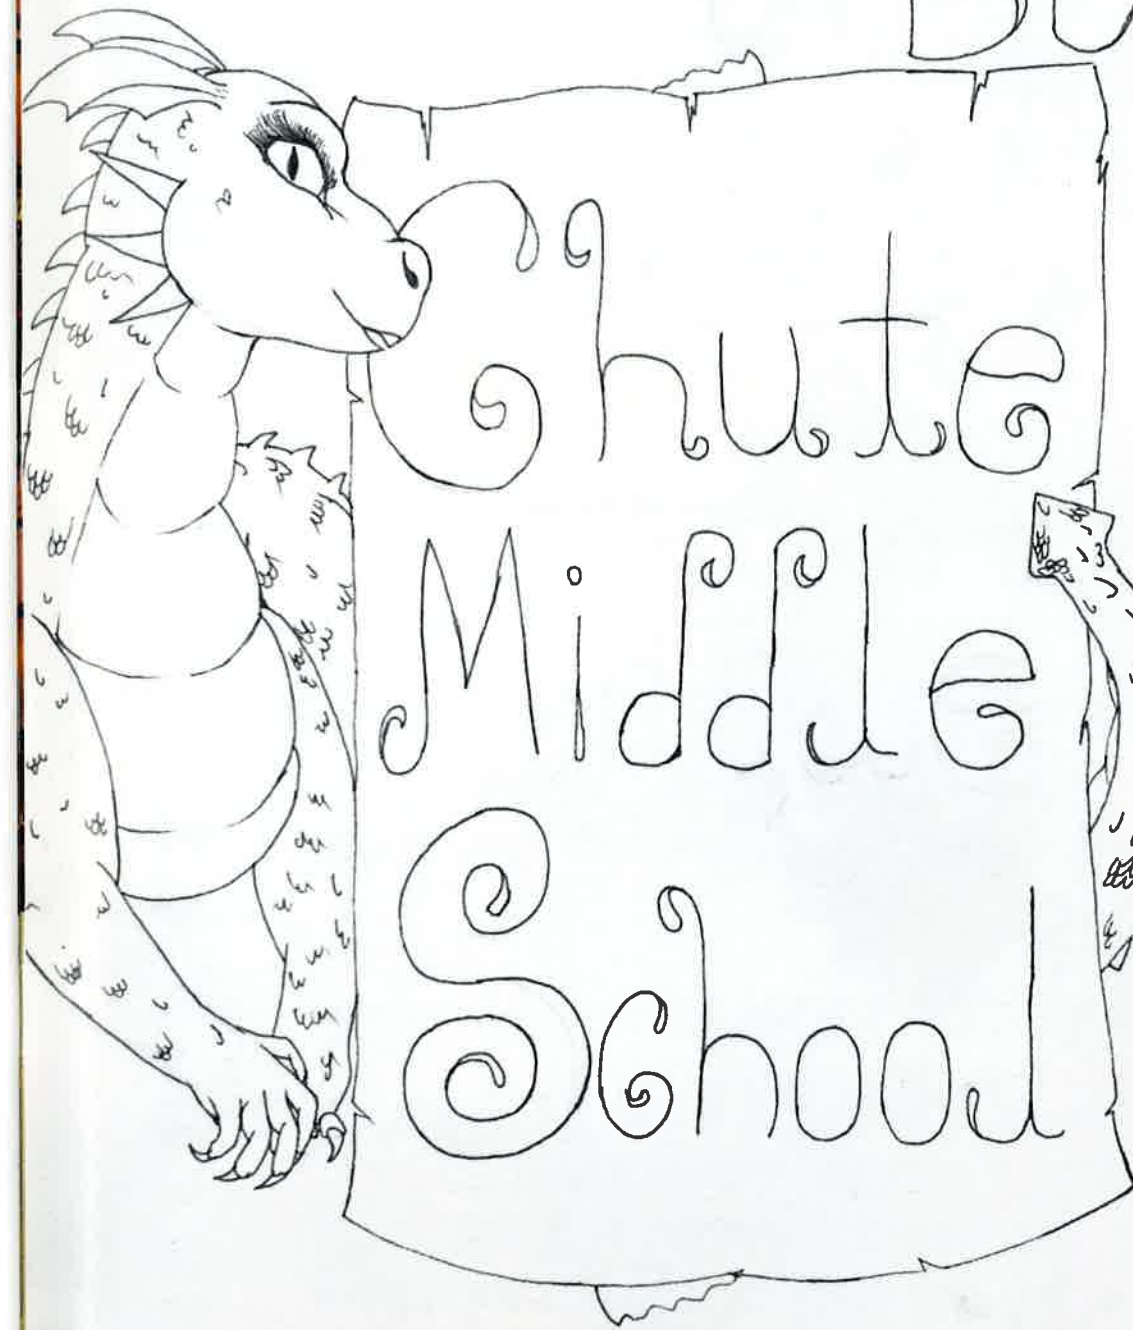 Chute
Middle
School